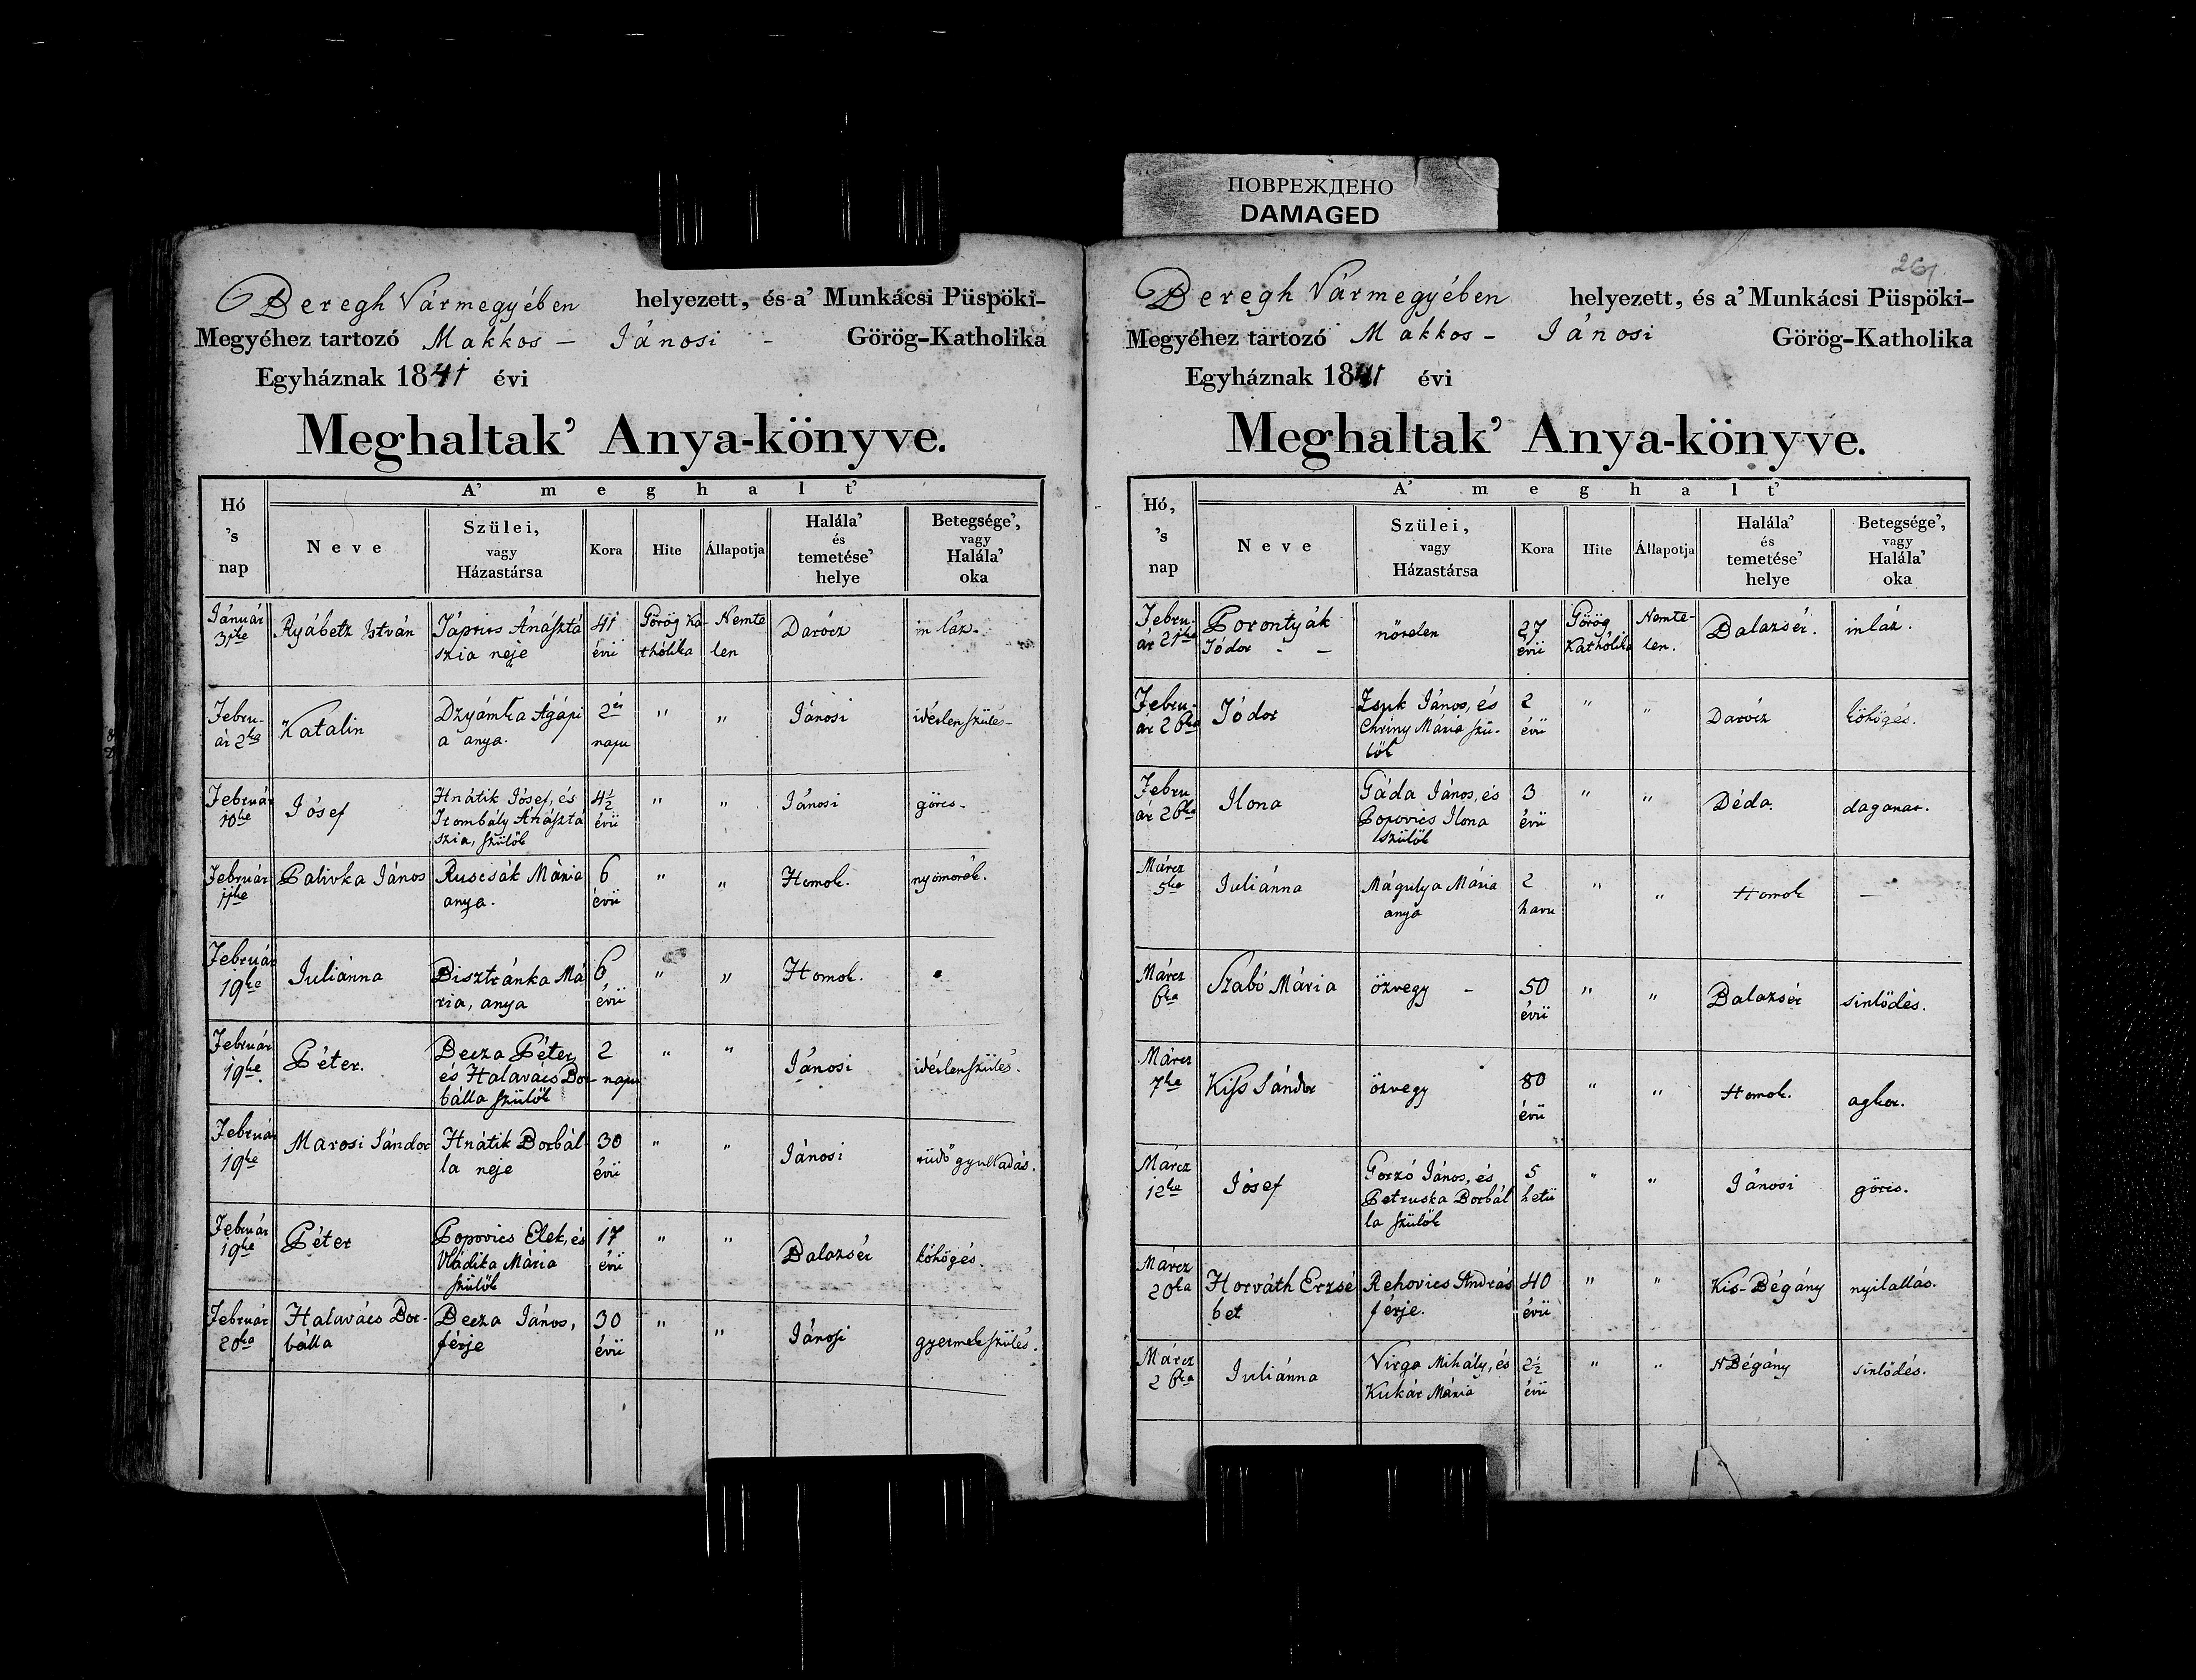 ПОВРЕЖДЕНО
DAMAGED
Beregh Vármegyében helyezett, és a' Munkácsi Püspöki-
Megyéhez tartozó Makkos - Jánosi - Görög-Katholika
Egyháznak 1841 évi
Meghaltak' Anya-könyve.
A' meghalt'
Hó 's nap
Neve
Szülei, vagy Házastársa
Kora
Hite
Állapotja
Halála' és temetése' helye
Betegsége', vagy Halála' oka
Január Ryábetz István Anásztászia neje 41 évü Görög Katholika Nemtelen Darócz inláz.
Február 2ka Katalin Dzyámka Agápia anya. napu " " Jánosi idétlenszülés
Február 10ke Jósef Hnátik Jósef, és Anásztászia, szülők 4½ évü " " Jánosi görcs
Február 11ke Palivka János Ruscsák Mária anya. 6 évü " " Homok. nyomorék.
Február 19ke Juliánna Bisztránka Mária, anya 6 évü " " Homok.
Február 19ke Péter. Becza Péter és Halavács Borbálla szülők 2 napu " " Jánosi idétlenszülés.
Február 19ke Marosi Sándor Hnátik Borbálla neje 30 évü " " Jánosi tüdő gyulladás.
Február 19ke Péter Popovics Elek, és Vládika Mária szülők 17 évü " " Balazsér köhögés.
Február 20ka Halavács Borbálla Becza János, férje 30 évü " " Jánosi gyermek szülés.
261
Beregh Vármegyében helyezett, és a' Munkácsi Püspöki-
Megyéhez tartozó Makkos - Jánosi Görög-Katholika
Egyháznak 1841 évi
Meghaltak' Anya-könyve.
A' meghalt'
Hó, 's nap
Neve
Szülei, vagy Házastársa
Kora
Hite
Állapotja
Halála' és temetése' helye
Betegsége', vagy Halála' oka
Február 21ke Porontyák Fódor - - nőtelen 27 évü Görög Kathólika Nemtelen. Balazsér. inláz.
Február 26ka Fódor Zsuk János, és Chriny Mária szülők 2 évü " " Darócz köhögés.
Február 26ka Ilona Gáda János, és Popovics Ilona szülők 3 évü " " Déda. daganat.
Márcz 5ke Juliánna Mágulya Mária anya 2 havu " " Homok —
Márcz 6ka Szabó Mária özvegy - 50 évü " " Balazsér sinlödés.
Márcz 7ke Kiss Sándor özvegy 80 évü " " Homok. agkor.
Márcz 12ke Jósef Gorzó János, és Petruska Borbálla szülők 5 hetü " " Jánosi görcs.
Márcz 20ka Horváth Erzsébet Rehovics András férje. 40 évü " " Kis-Bégány nyilallás.
Márcz 26ka Juliánna Virga Mihály, és Kukár Mária 2½ évü " " NBégány sinlődés.